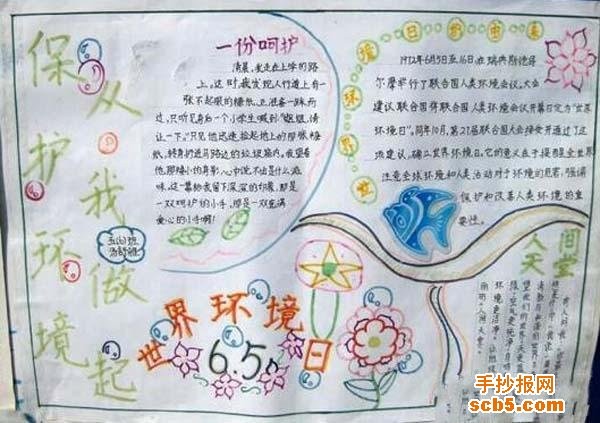 保护环境
从我做起
一份呵护
清晨,我走在上学的路
上。这时,我发现人行道上有一
张不起眼的糖纸,正准备一跃而
过,只听见身后一个小学生喊到"姐姐,请
让一下。"只见他迅速捡起地上的那张糖
纸,转身扔进马路边的垃圾箱内。我望着
他那矮小的身影,心中说不出是什么滋
味,这一幕给我留下深深的印象,那是
一双呵护的小手,那是一双充满
爱心的小手啊!
世界环境日的由来
1972年6月5日至16日在瑞典斯德哥
尔摩举行了联合国人类环境会议。大会
建议联合国将联合国人类环境会议开幕日定为"世界
环境日"。同年10月,第27届联合国大会接受并通过了这
项建议,确立世界环境日。它的意义在于提醒全世界
注意全球环境和人类活动对于环境的危害,强调
保护和改善人类环境的重
要性。
人间
天堂
世界环境日
6.5
手抄报网
scb5.com